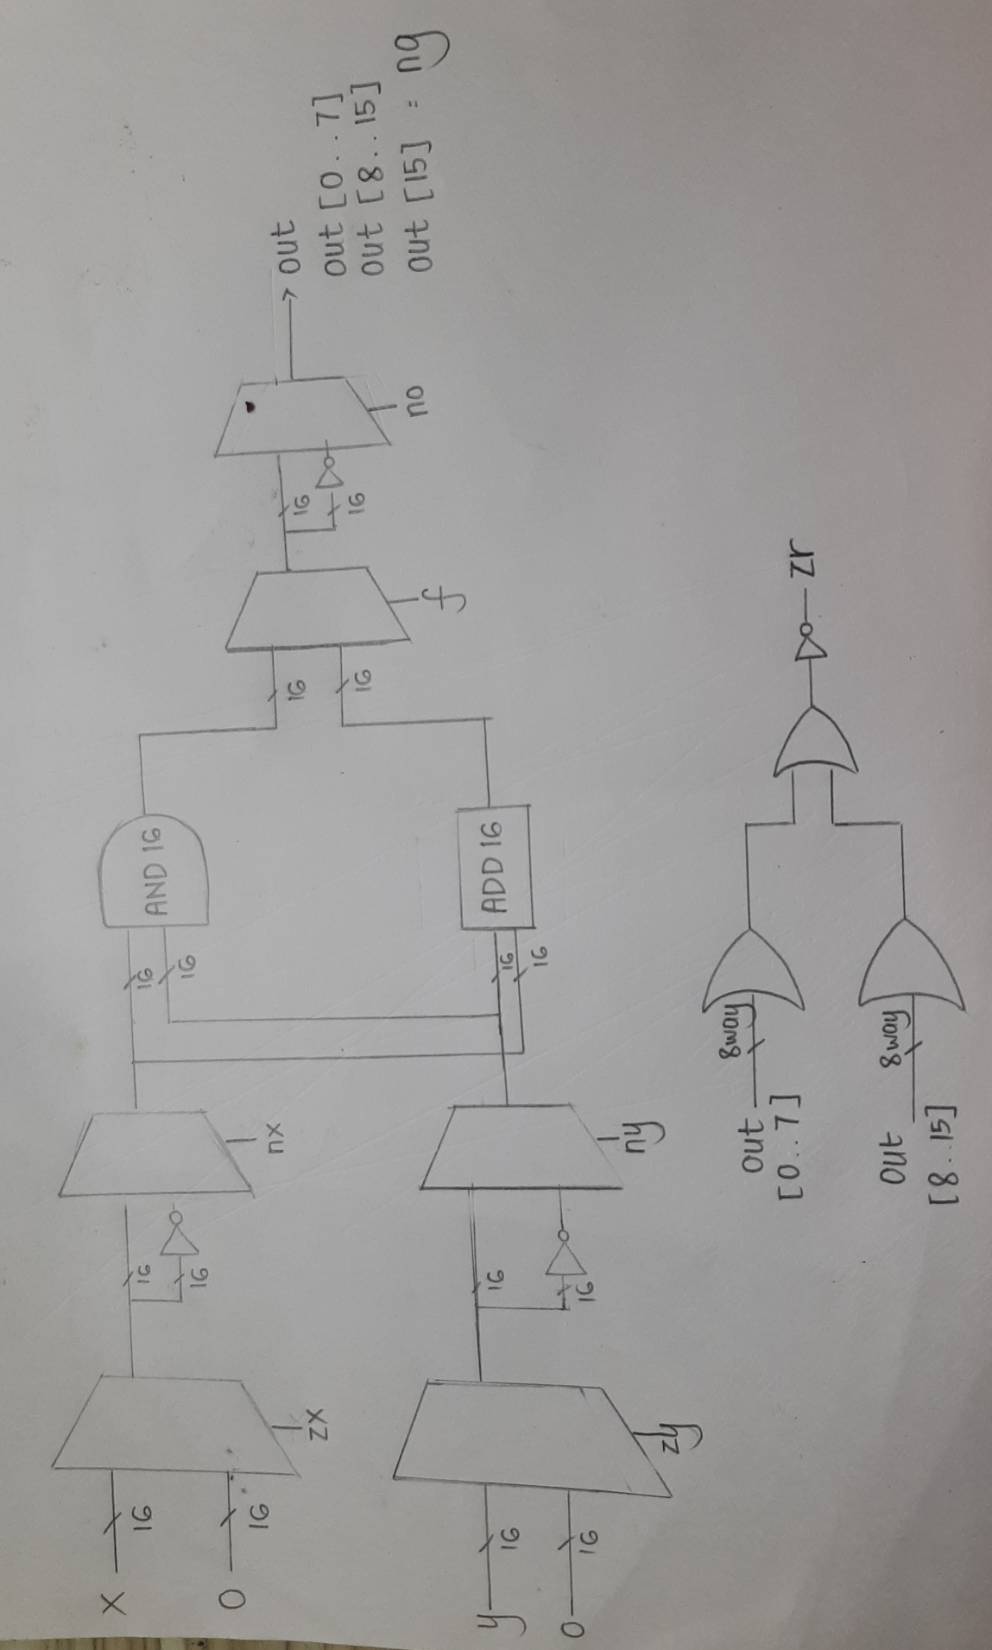 X
16
0
16
zx
16
16
nx
16
16
AND 16
y
16
0
16
zy
16
16
ny
16
16
ADD 16
16
16
f
16
16
no
out
out [0...7]
out [8...15]
out [15] = ng
out
[0..7]
8way
out
[8..15]
8way
zr